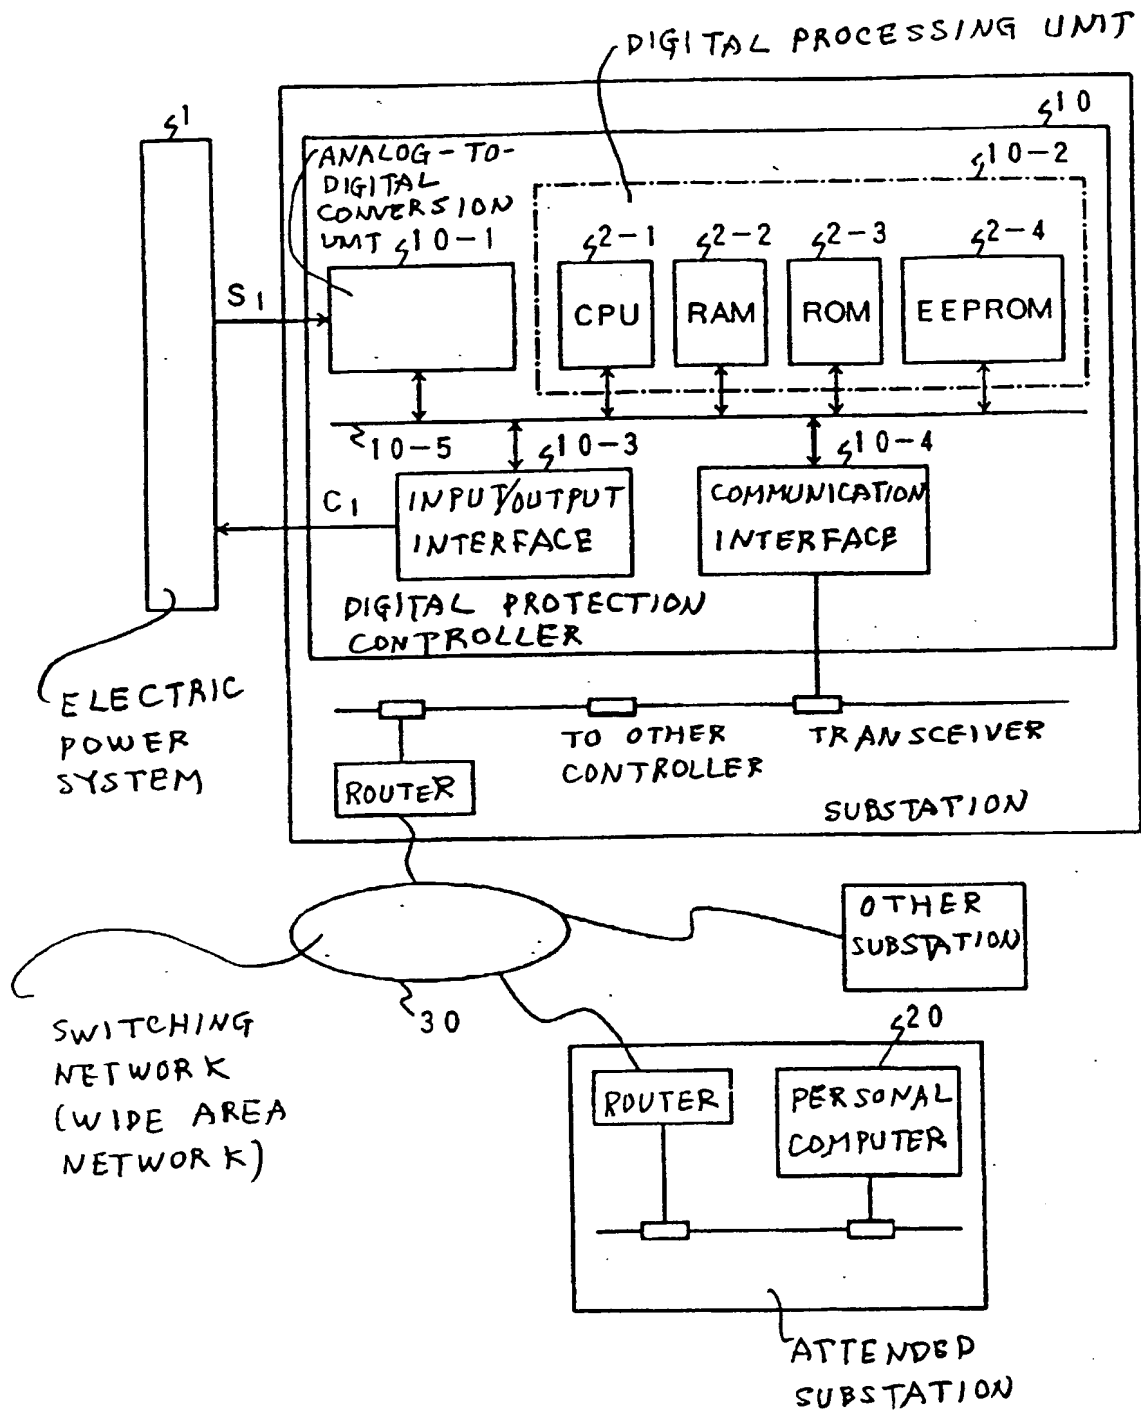 DIGITAL PROCESSING UNIT
1
10
ANALOG-TO-
DIGITAL
CONVERSION
UNIT
10-1
10-2
2-1
2-2
2-3
2-4
CPU
RAM
ROM
EEPROM
S1
10-5
10-3
10-4
C1
INPUT/OUTPUT
INTERFACE
COMMUNICATION
INTERFACE
DIGITAL PROTECTION
CONTROLLER
ELECTRIC
POWER
SYSTEM
TO OTHER
CONTROLLER
TRANSCEIVER
ROUTER
SUBSTATION
OTHER
SUBSTATION
30
SWITCHING
NETWORK
(WIDE AREA
NETWORK)
20
ROUTER
PERSONAL
COMPUTER
ATTENDED
SUBSTATION